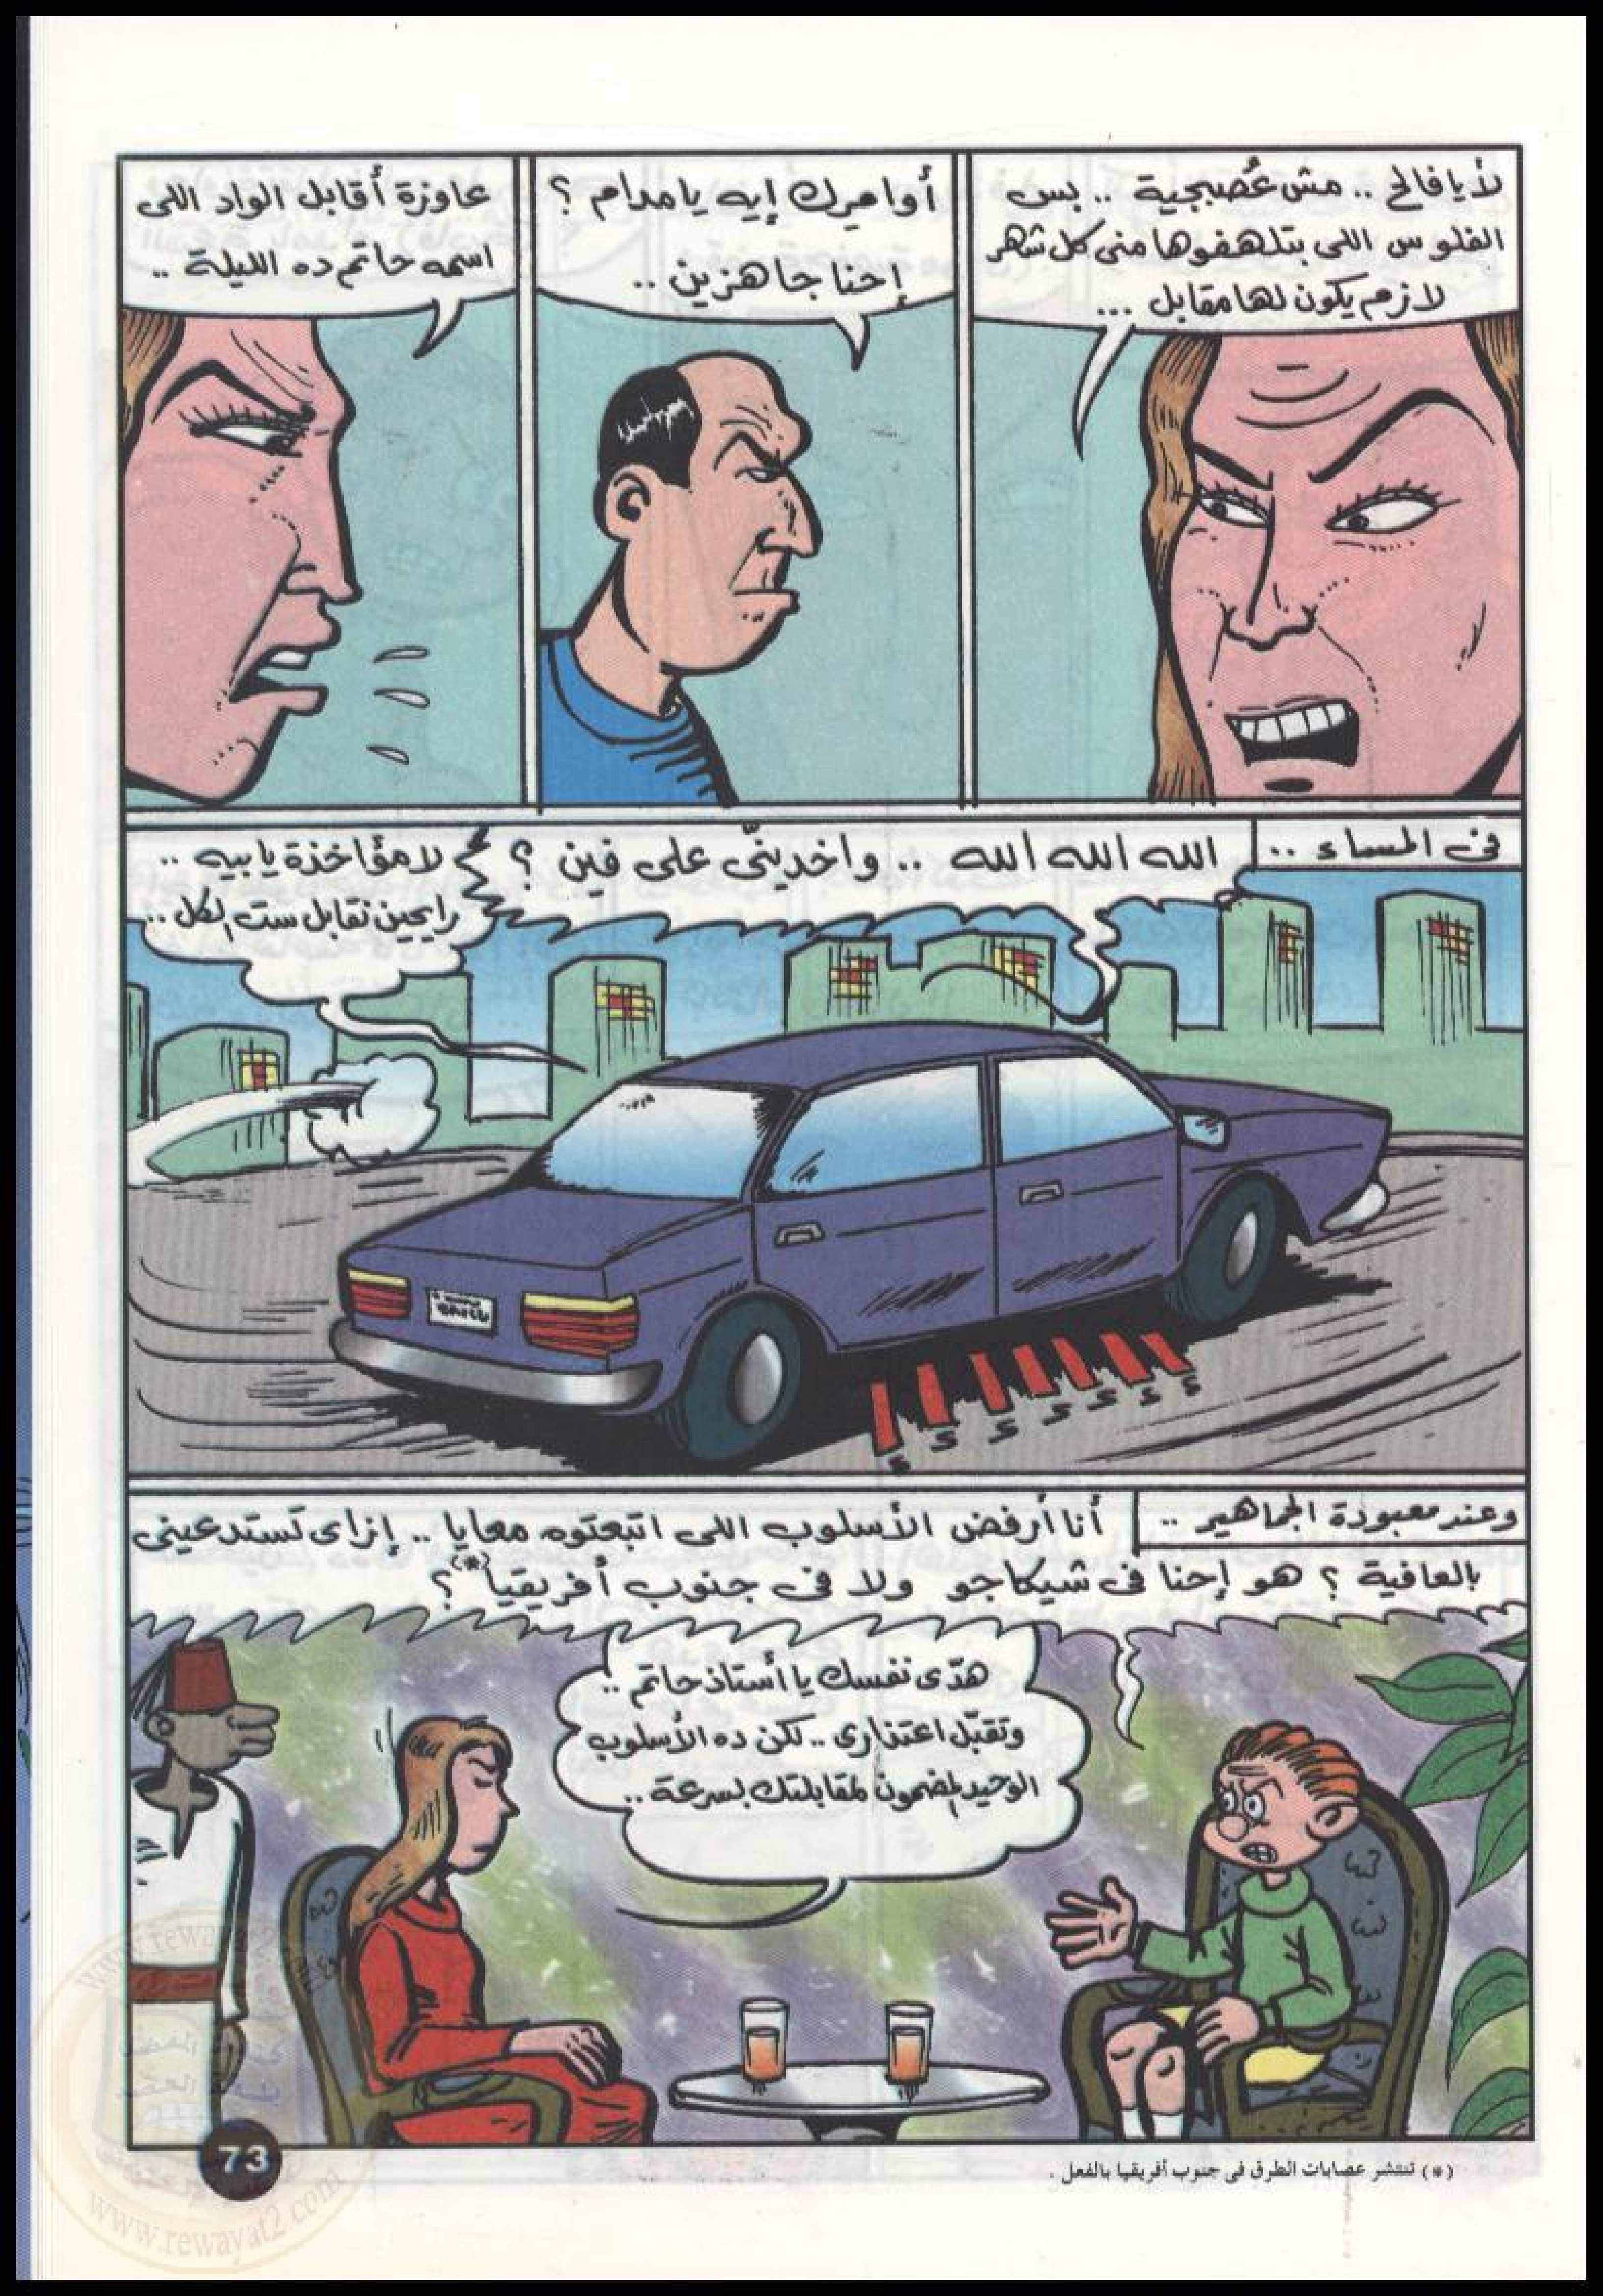 لأ يا فالح .. مش عُصبجية .. بس
الفلوس اللى بتلهفوها منى كل شهر
لازم يكون لها مقابل ...
أوامرك إيه يا مدام ؟
إحنا جاهزين ..
عاوزة أقابل الواد اللى
اسمه حاتم ده الليلة ..
فى المساء ..
الله الله الله .. واخدينّى على فين ؟
لا مؤاخذة يا بيه ..
رايحين نقابل ست الكل ..
وعند معبودة الجماهير ..
أنا أرفض الأسلوب اللى اتبعتوه معايا .. إزاى تستدعينى
بالعافية ؟ هو إحنا فى شيكاجو ولا فى جنوب أفريقيا (*) ؟
هدّى نفسك يا أستاذ حاتم ..
وتقبّل اعتذارى .. لكن ده الأسلوب
الوحيد المضمون لمقابلتك بسرعة ..
(*) تنتشر عصابات الطرق فى جنوب أفريقيا بالفعل .
73
www.rewayat2.com